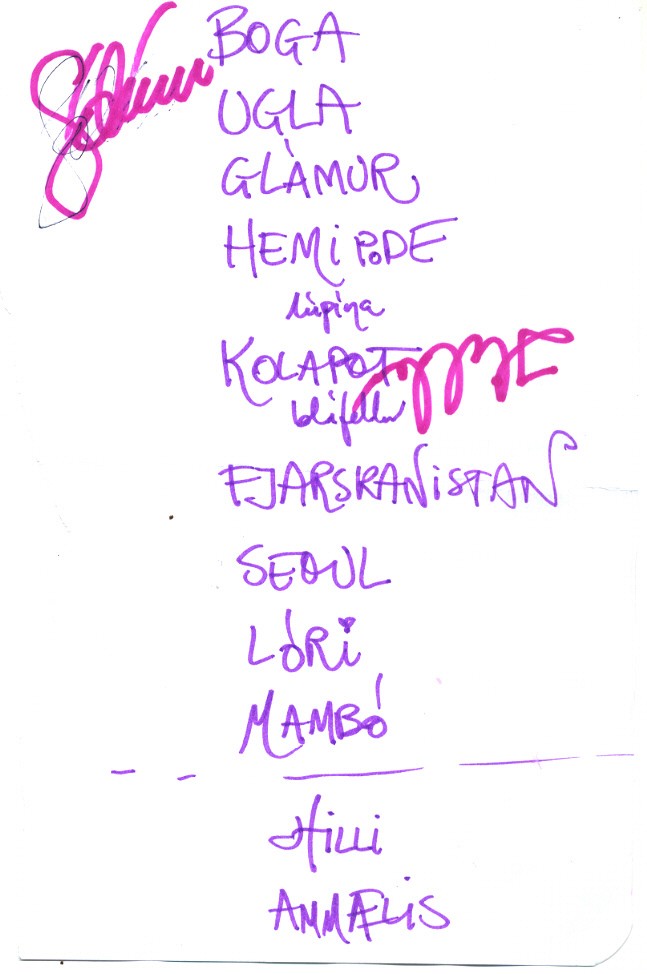 BOGA
UGLA
GLÀMUR
HEMiPODE
lùpìna
KOLAPOT
blífellur
FJARSKANiSTAN
SEOUL
LÓRi
MAMBÓ
Hilli